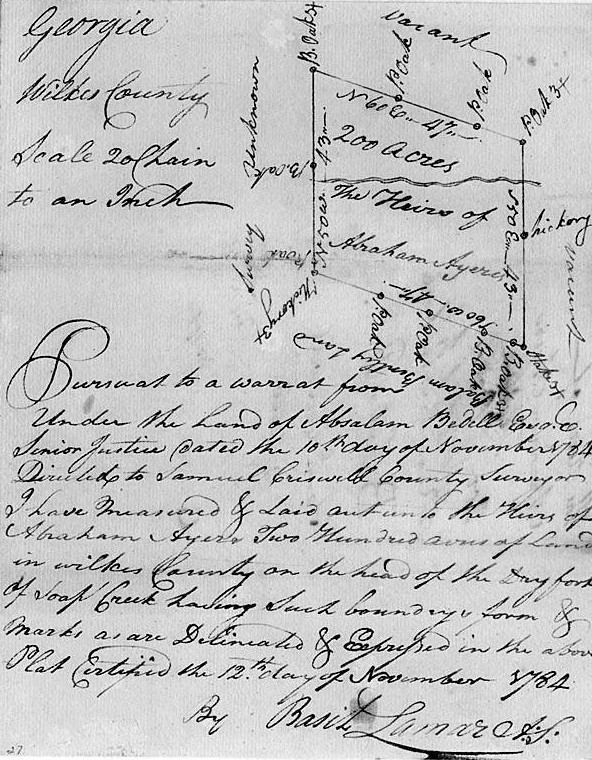 Georgia
Wilkes County
Scale 20 Chain
to an Inch
B. Oak 3+
Vacant
P. Oak
P. Oak
P. Oak 3+
N 60 E 47
Unknown
43
B. Oak
200 Acres
The Heirs of
Abraham Ayers
N 30 W
S 30 E 43
hickory
Vacant
Hickory 3+
S 60 W 47
P. Oak
P. Oak
B. Oak
Land
Pursuat to a warrat from
Under the Land of Absalam Bedell Esq. C.
Senior Justice dated the 10th day of November 1784
Directed to Samuel Criswell County Surveyor
I have Measured & Laid out unto the Heirs of
Abraham Ayers Two Hundred acres of Land
in wilkes County on the head of the Dry fork
of Soap Creek having Such boundrys form &
Marks as are Delineated & Expressed in the above
Plat Certified the 12th day of November 1784
By Basil Lamar D.S.
27